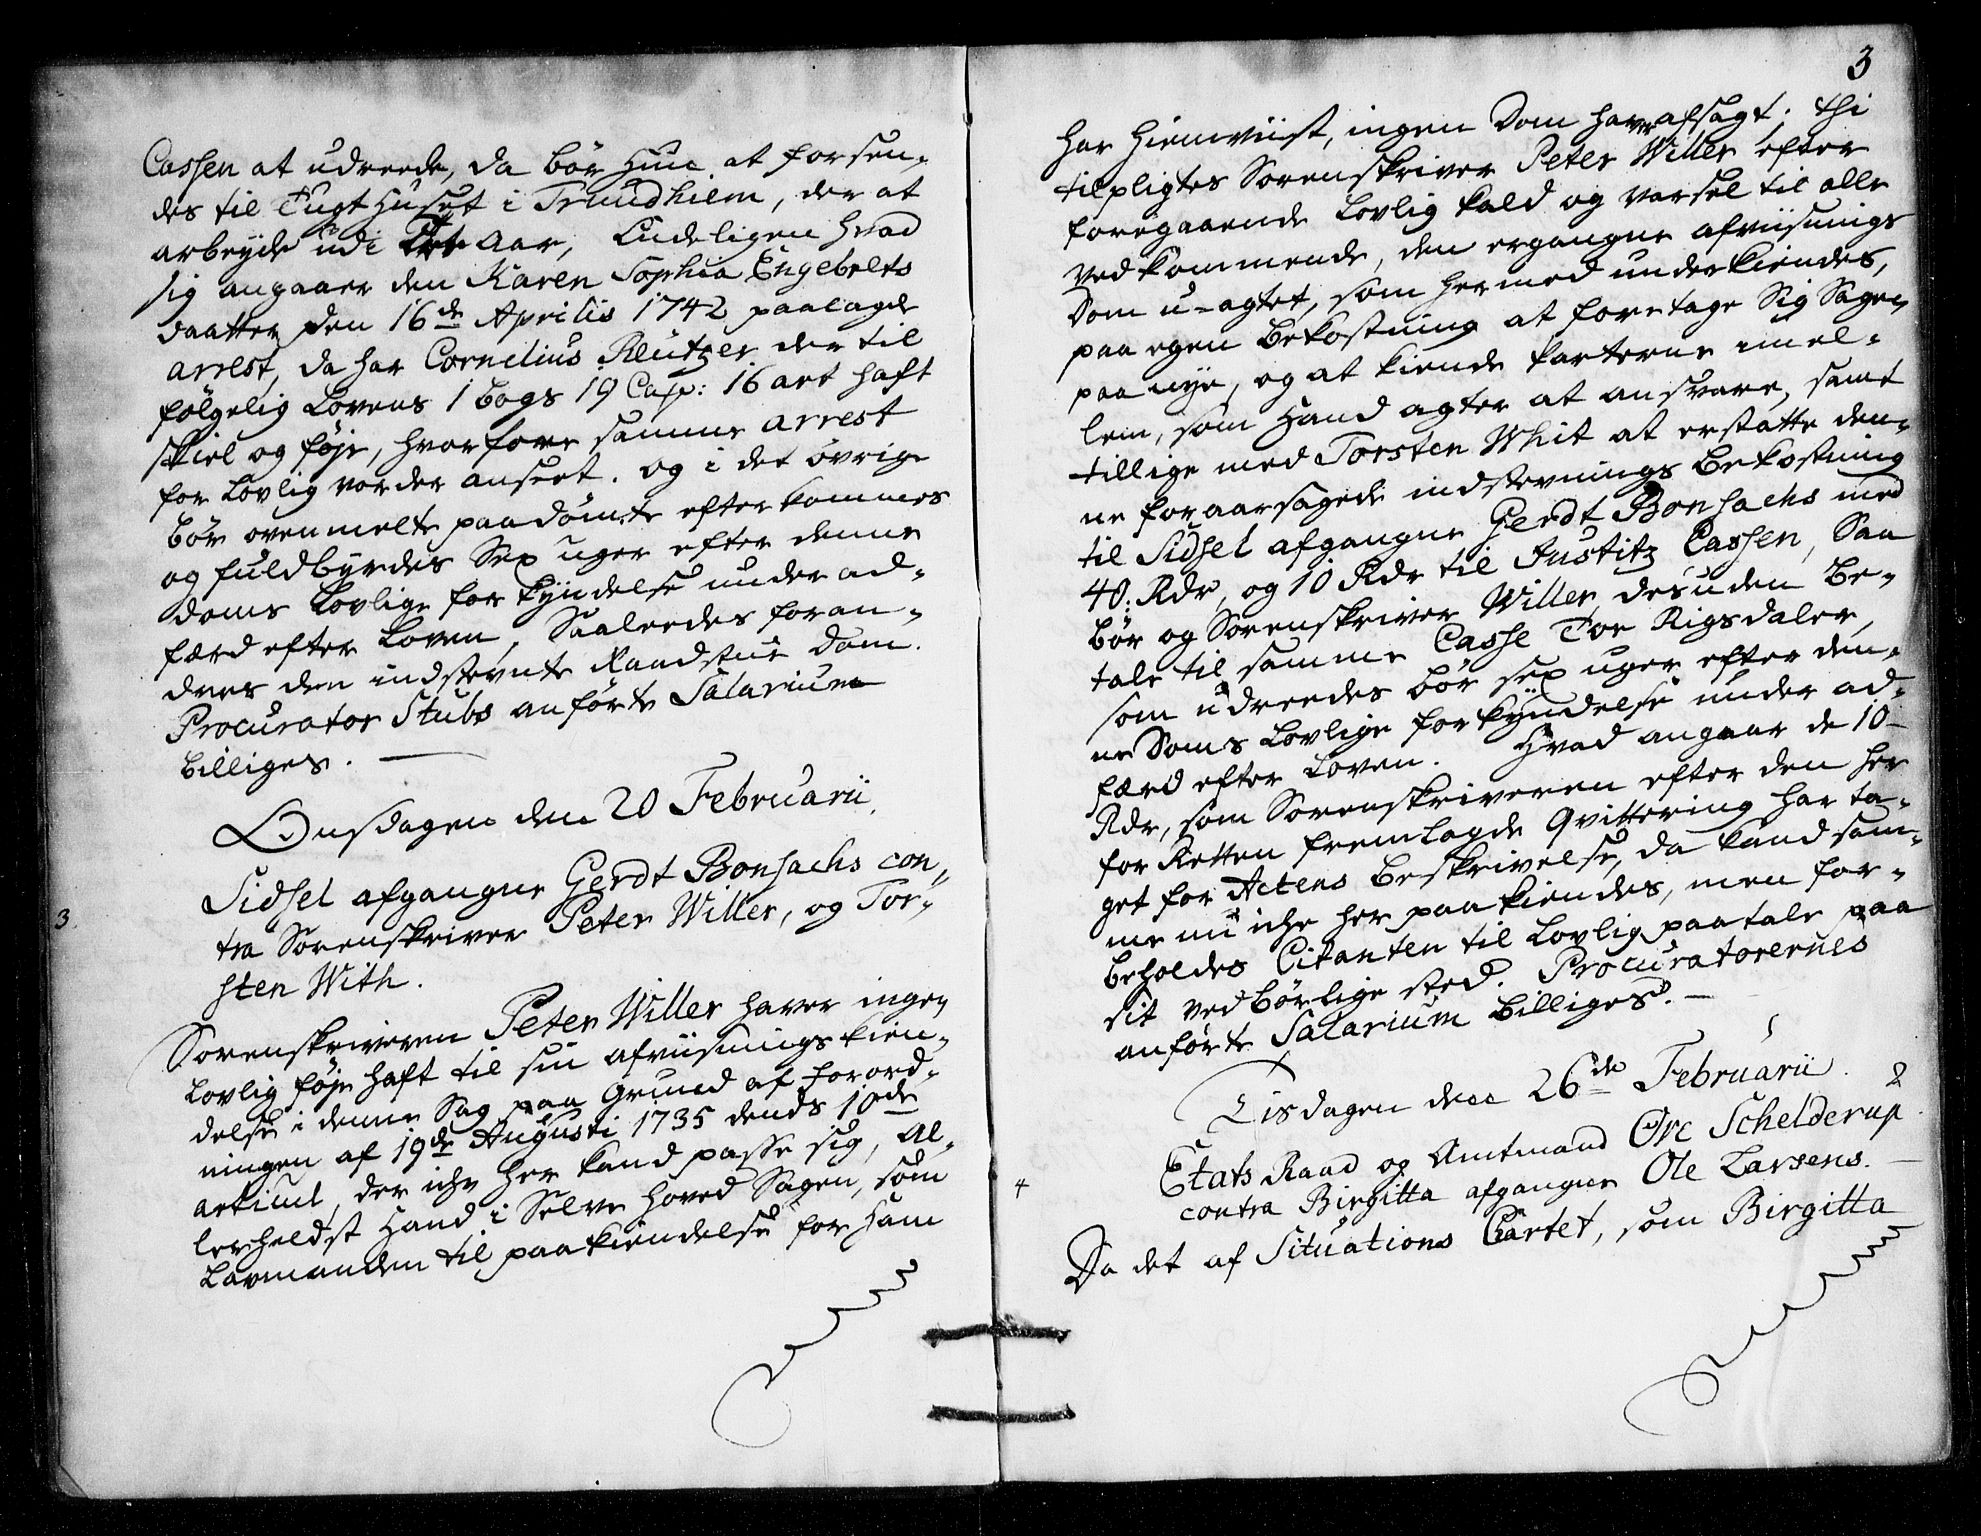 Cassen at udreede, da bör Hun at forsen-
des til Tugthuset i Trundhiem, der at
arbeyde udi Tre Aar, Endeligen hvad
sig angaaer den Karen Sophia Engebrets
daatter den 16de Aprilis 1742 paalagde
arrest, da har Cornelius Reutzer der til
følgelig Lovens 1 bogs 19 Cap: 16 art haft
skiel og føje, hvorfore samme arrest
for lovlig vorder anseet. og i det övrige
bör ovenmelte paadömte efterkommes
og fuldbyrdes Sex uger efter denne
doms lovlige forkyndelse under ad-
færd efter loven, Saaleedes foran-
dres den indstevnte Raadstue dom.
Procurator Stubs anförte Salarium
billiges.
Onsdagen den 20 Februarii
3. Sidsel afgangne Gerdt Bonsachs con-
tra Sorenskriver Peter Willer, og Tor-
sten With.
Sorenskriveren Peter Willer haver ingen
lovlig föje haft til sin afviisnings kien-
delse i denne Sag paa Grund af Forord-
ningen af 19de Augusti 1735 dends 10de
artiкul, der iche her kand passe sig, Al-
lerheldst Hand i Selve hoved Sagen, som
Lavmanden til paakiendelse for Ham
3
har hienviist, ingen Dom haver afsagt; thi
tilpligtes Sorenskriver Peter Willer efter
foregaaende lovlig kald og varsel til alle
vedkommende, den ergangne afviisnings
Dom u-agtet, som hermed underkiendes,
paa egen bekostning at foretage Sig Sagen
paa nye, og at kiende parterne imel-
lem, som Hand agter at ansvare, samt
tillige med Torsten Whit at erstatte den-
ne foraarsagede indstevnings bekostning
til Sidsel afgangne Gerdt Bonsachs med
40: Rdr, og 10 Rdr til Justitz Cassen, Saa
bör og Sorenskriver Willer desuden be-
tale til samme Casse Toe Rigsdaler,
som udreedes bör sex uger efter den-
ne Doms lovlige forkyndelse under ad-
færd efter loven. Hvad angaar de 10
Rdr, som Sorenskriveren efter den her
for Retten fremlagde Qvittering har ta-
get for Actens beskrivelse, da kand sam-
me nu iche her paakiendes, men for-
beholdes Citanten til lovlig paatale paa
sit vedbörlige sted. Procuratorernes
anförte Salarium billiges.
Tisdagen den 26de Februarii
2
4 Etats Raad og Amtmand Ove Schelderup
contra Birgitta afgangne Ole Larsens.
Da det af Situations Cartet, som Birgitta